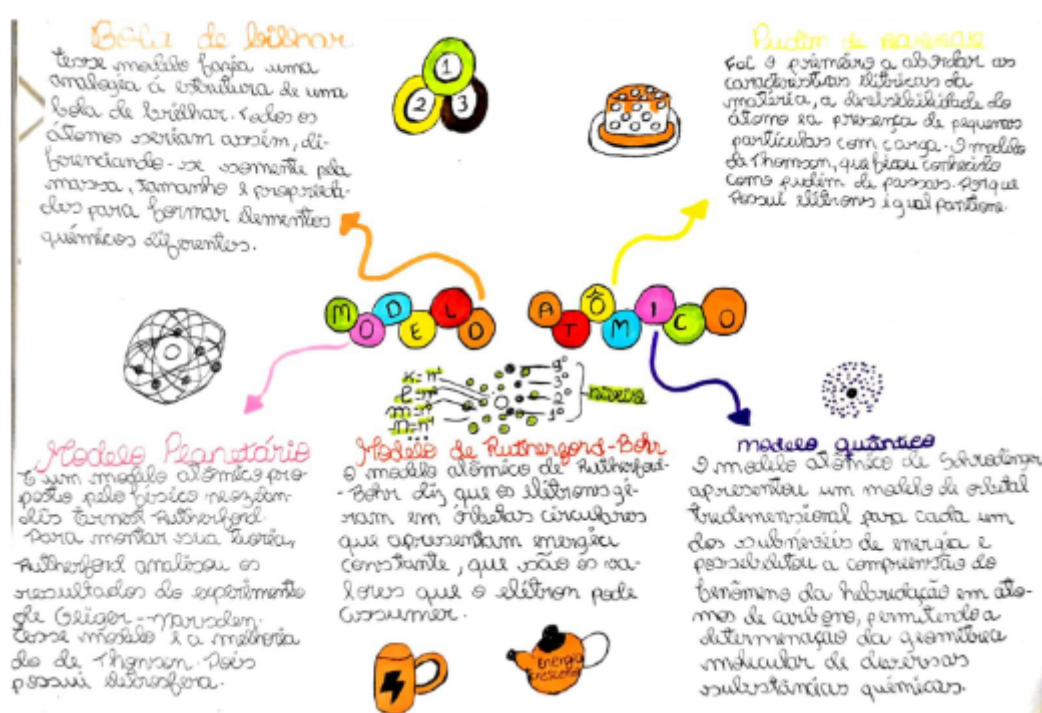 Bola de bilhar
Esse modelo fazia uma
analogia á estrutura de uma
bola de brilhar. Todos os
átomos seriam assim, di-
ferenciando-se somente pela
massa, tamanho e proprieda-
des para formar elementos
químicos diferentes.
1
2 3
Pudim de passas
Foi o primeiro a abordar as
características elétricas da
matéria, a divisibilidade do
átomo e a presença de pequenas
partículas com carga. O modelo
de Thomson, que ficou conhecido
como pudim de passas. Porque
possui elétrons igual
MODELO ATÔMICO
K = nº
L = nº
m = nº
n = nº
...
3º
2º
1º
níveis
Modelo Planetário
É um modelo atômico pro-
posto pelo físico neozelan-
dês Ernest Rutherford
Para montar sua teoria,
Rutherford analisou os
resultados do experimento
de Geiger-Marsden.
Esse modelo é a melhoria
do de Thomson. Pois
possui eletrosfera.
Modelo de Rutherford-Bohr
O modelo atômico de Rutherford-
-Bohr diz que os elétrons gi-
ram em órbitas circulares
que apresentam energia
constante, que são os va-
lores que o elétron pode
assumir.
Energia
crescente
modelo quântico
O modelo atômico de Schrodinger
apresentou um modelo de orbital
tridimensional para cada um
dos subníveis de energia e
possibilitou a compreensão do
fenômeno da hibridação em áto-
mos de carbono, permitindo a
determinação da geometria
molecular de diversas
substâncias químicas.